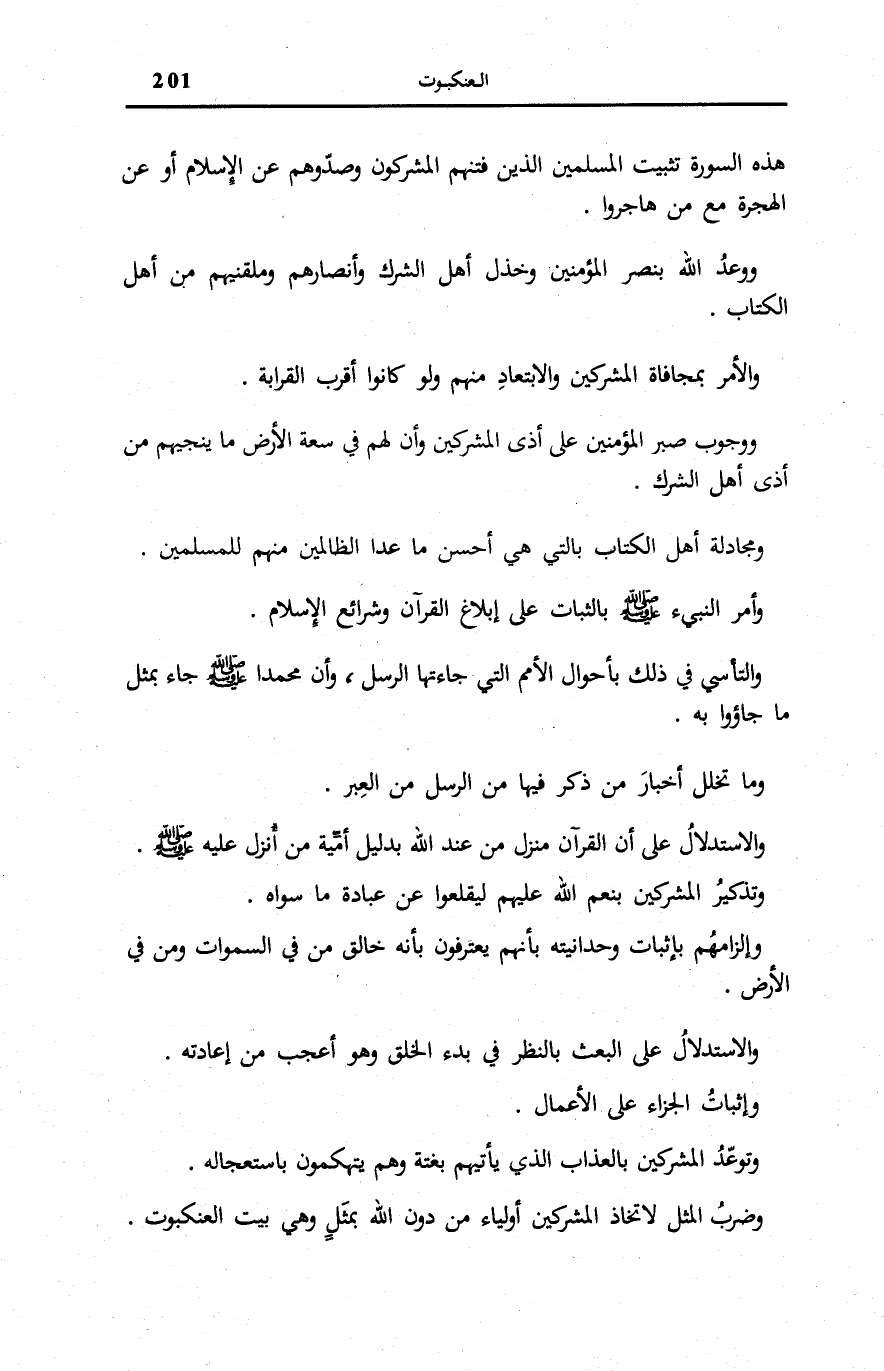 العنكبوت 201
هذه السورة تثبيت المسلمين الذين فتنهم المشركون وصدّوهم عن الإسلام أو عن
الهجرة مع من هاجروا .
ووعدُ الله بنصر المؤمنين وخذل أهل الشرك وأنصارهم وملقنيهم من أهل
الكتاب .
والأمر بمجافاة المشركين والابتعادِ منهم ولو كانوا أقرب القرابة .
ووجوب صبر المؤمنين على أذى المشركين وأن لهم في سعة الأرض ما ينجيهم من
أذى أهل الشرك .
ومجادلة أهل الكتاب بالتي هي أحسن ما عدا الظالمين منهم للمسلمين .
وأمر النبيء ﷺ بالثبات على إبلاغ القرآن وشرائع الإسلام .
والتأسي في ذلك بأحوال الأمم التي جاءتها الرسل ، وأن محمدا ﷺ جاء بمثل
ما جاؤوا به .
وما تخلل أخبارَ من ذكر فيها من الرسل من العِبر .
والاستدلالُ على أن القرآن منزل من عند الله بدليل أمّية من أُنزل عليه ﷺ .
وتذكيرُ المشركين بنعم الله عليهم ليقلعوا عن عبادة ما سواه .
وإلزامهُم بإثبات وحدانيته بأنهم يعترفون بأنه خالق من في السموات ومن في
الأرض .
والاستدلالُ على البعث بالنظر في بدء الخلق وهو أعجب من إعادته .
وإثباتُ الجزاء على الأعمال .
وتوعّدُ المشركين بالعذاب الذي يأتيهم بغتة وهم يتهكمون باستعجاله .
وضربُ المثل لاتخاذ المشركين أولياء من دون الله بمثَلٍ وهي بيت العنكبوت .